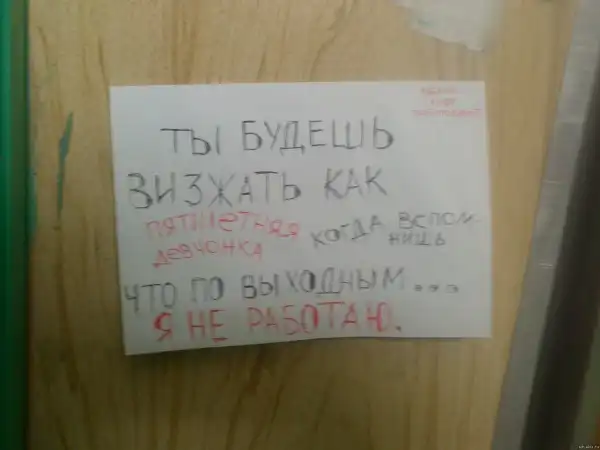 ТЫ БУДЕШЬ
ВИЗЖАТЬ КАК
ПЯТИЛЕТНЯЯ
ДЕВЧОНКА
КОГДА ВСПОМ-
НИШЬ
ЧТО ПО ВЫХОДНЫМ...
Я НЕ РАБОТАЮ.